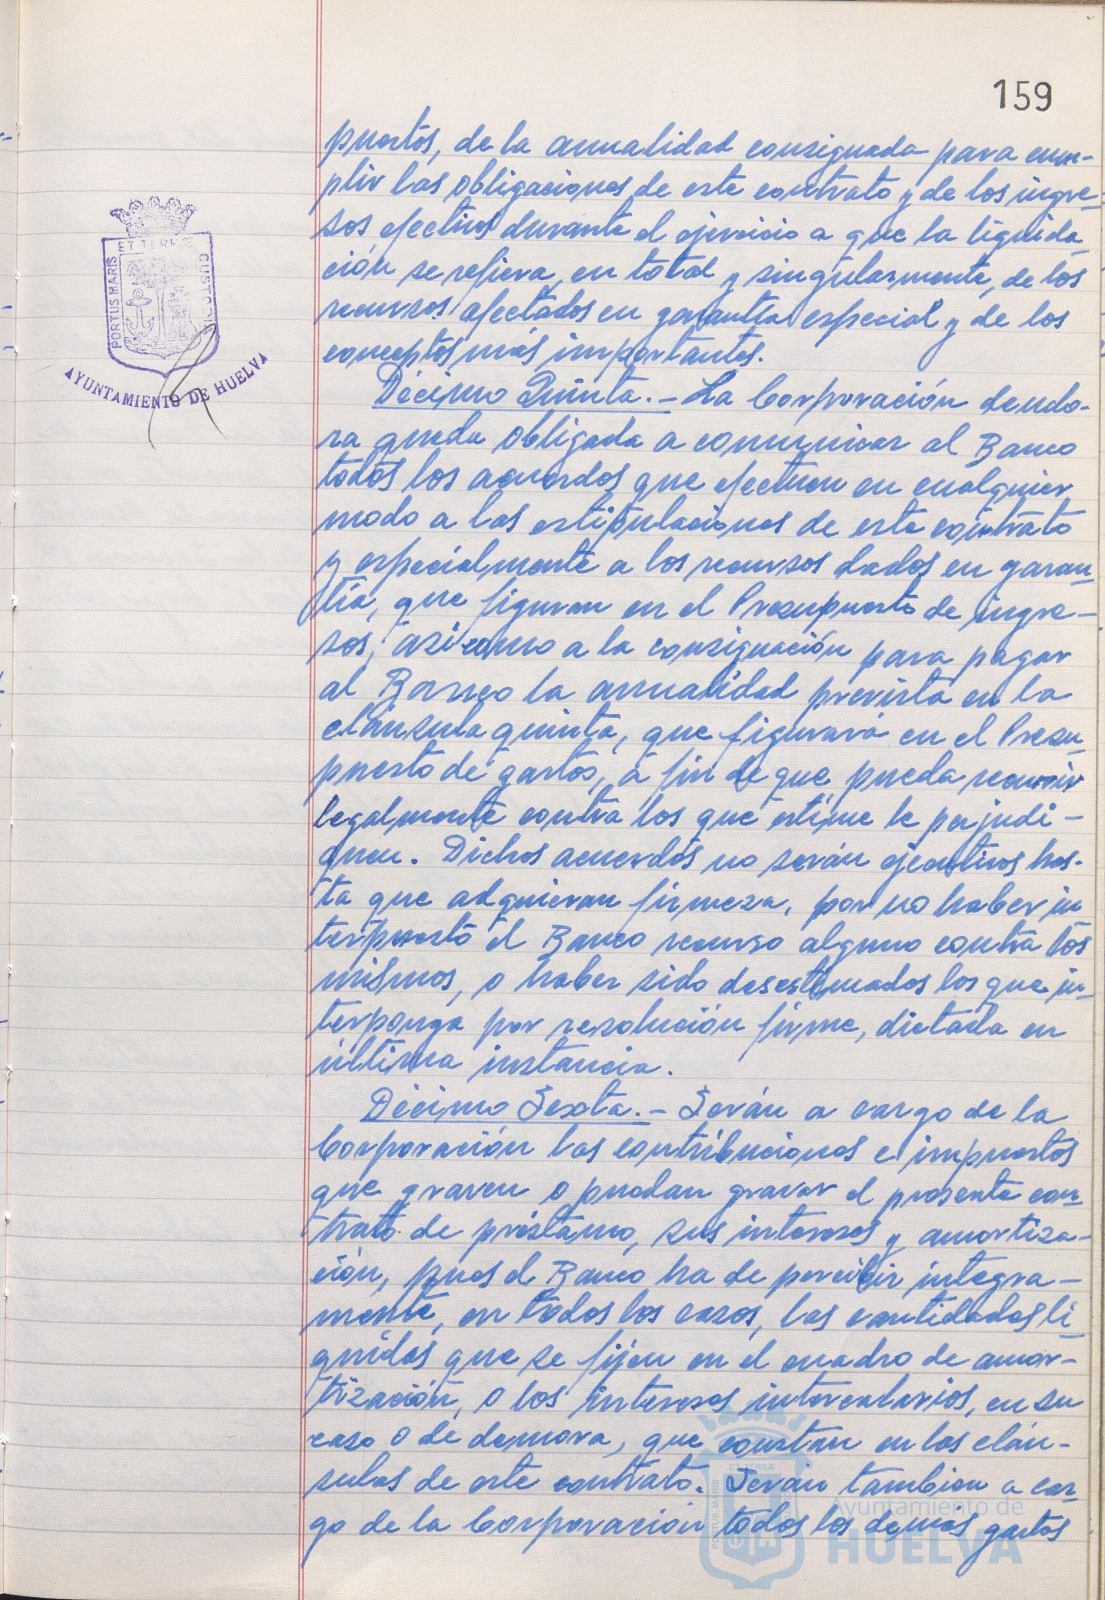 159
puestos, de la anualidad consignada para cum-
plir las obligaciones de este contrato y de los ingre-
sos efectivos durante el ejercicio a que la liquida
ción se refiera, en total y singularmente, de los
recursos afectados en garantía especial y de los
conceptos más importantes.
Décimo Quinta.- La Corporación deudo-
ra queda obligada a comunicar al Banco
todos los acuerdos que afecten en cualquier
modo a las estipulaciones de este contrato
y especialmente a los recursos dados en garan-
tía, que figuran en el Presupuesto de ingre-
sos, así como a la consignación para pagar
al Banco la anualidad prevista en la
cláusula quinta, que figurará en el Presu-
puesto de gastos, a fin de que pueda recurrir
legalmente contra los que estime le perjudi-
quen. Dichos acuerdos no serán ejecutivos has-
ta que adquieran firmeza, por no haber in
terpuesto el Banco recurso alguno contra los
mismos, o haber sido desestimados los que in-
terponga por resolución firme, dictada en
última instancia.
Décimo Sexta.- Serán a cargo de la
Corporación las contribuciones e impuestos
que graven o puedan gravar el presente con-
trato de préstamo, sus intereses y amortiza-
ción, pues el Banco ha de percibir íntegra-
mente, en todos los casos, las cantidades lí-
quidas que se fijen en el cuadro de amor-
tización, o los intereses intercalarios, en su
caso o de demora, que constan en las cláu-
sulas de este contrato. Serán también a car
go de la Corporación todos los demás gastos
PORTUS MARIS ET TERRÆ CUSTODIA
AYUNTAMIENTO DE HUELVA
PORTUS MARIS ET TERRÆ
Ayuntamiento de
HUELVA